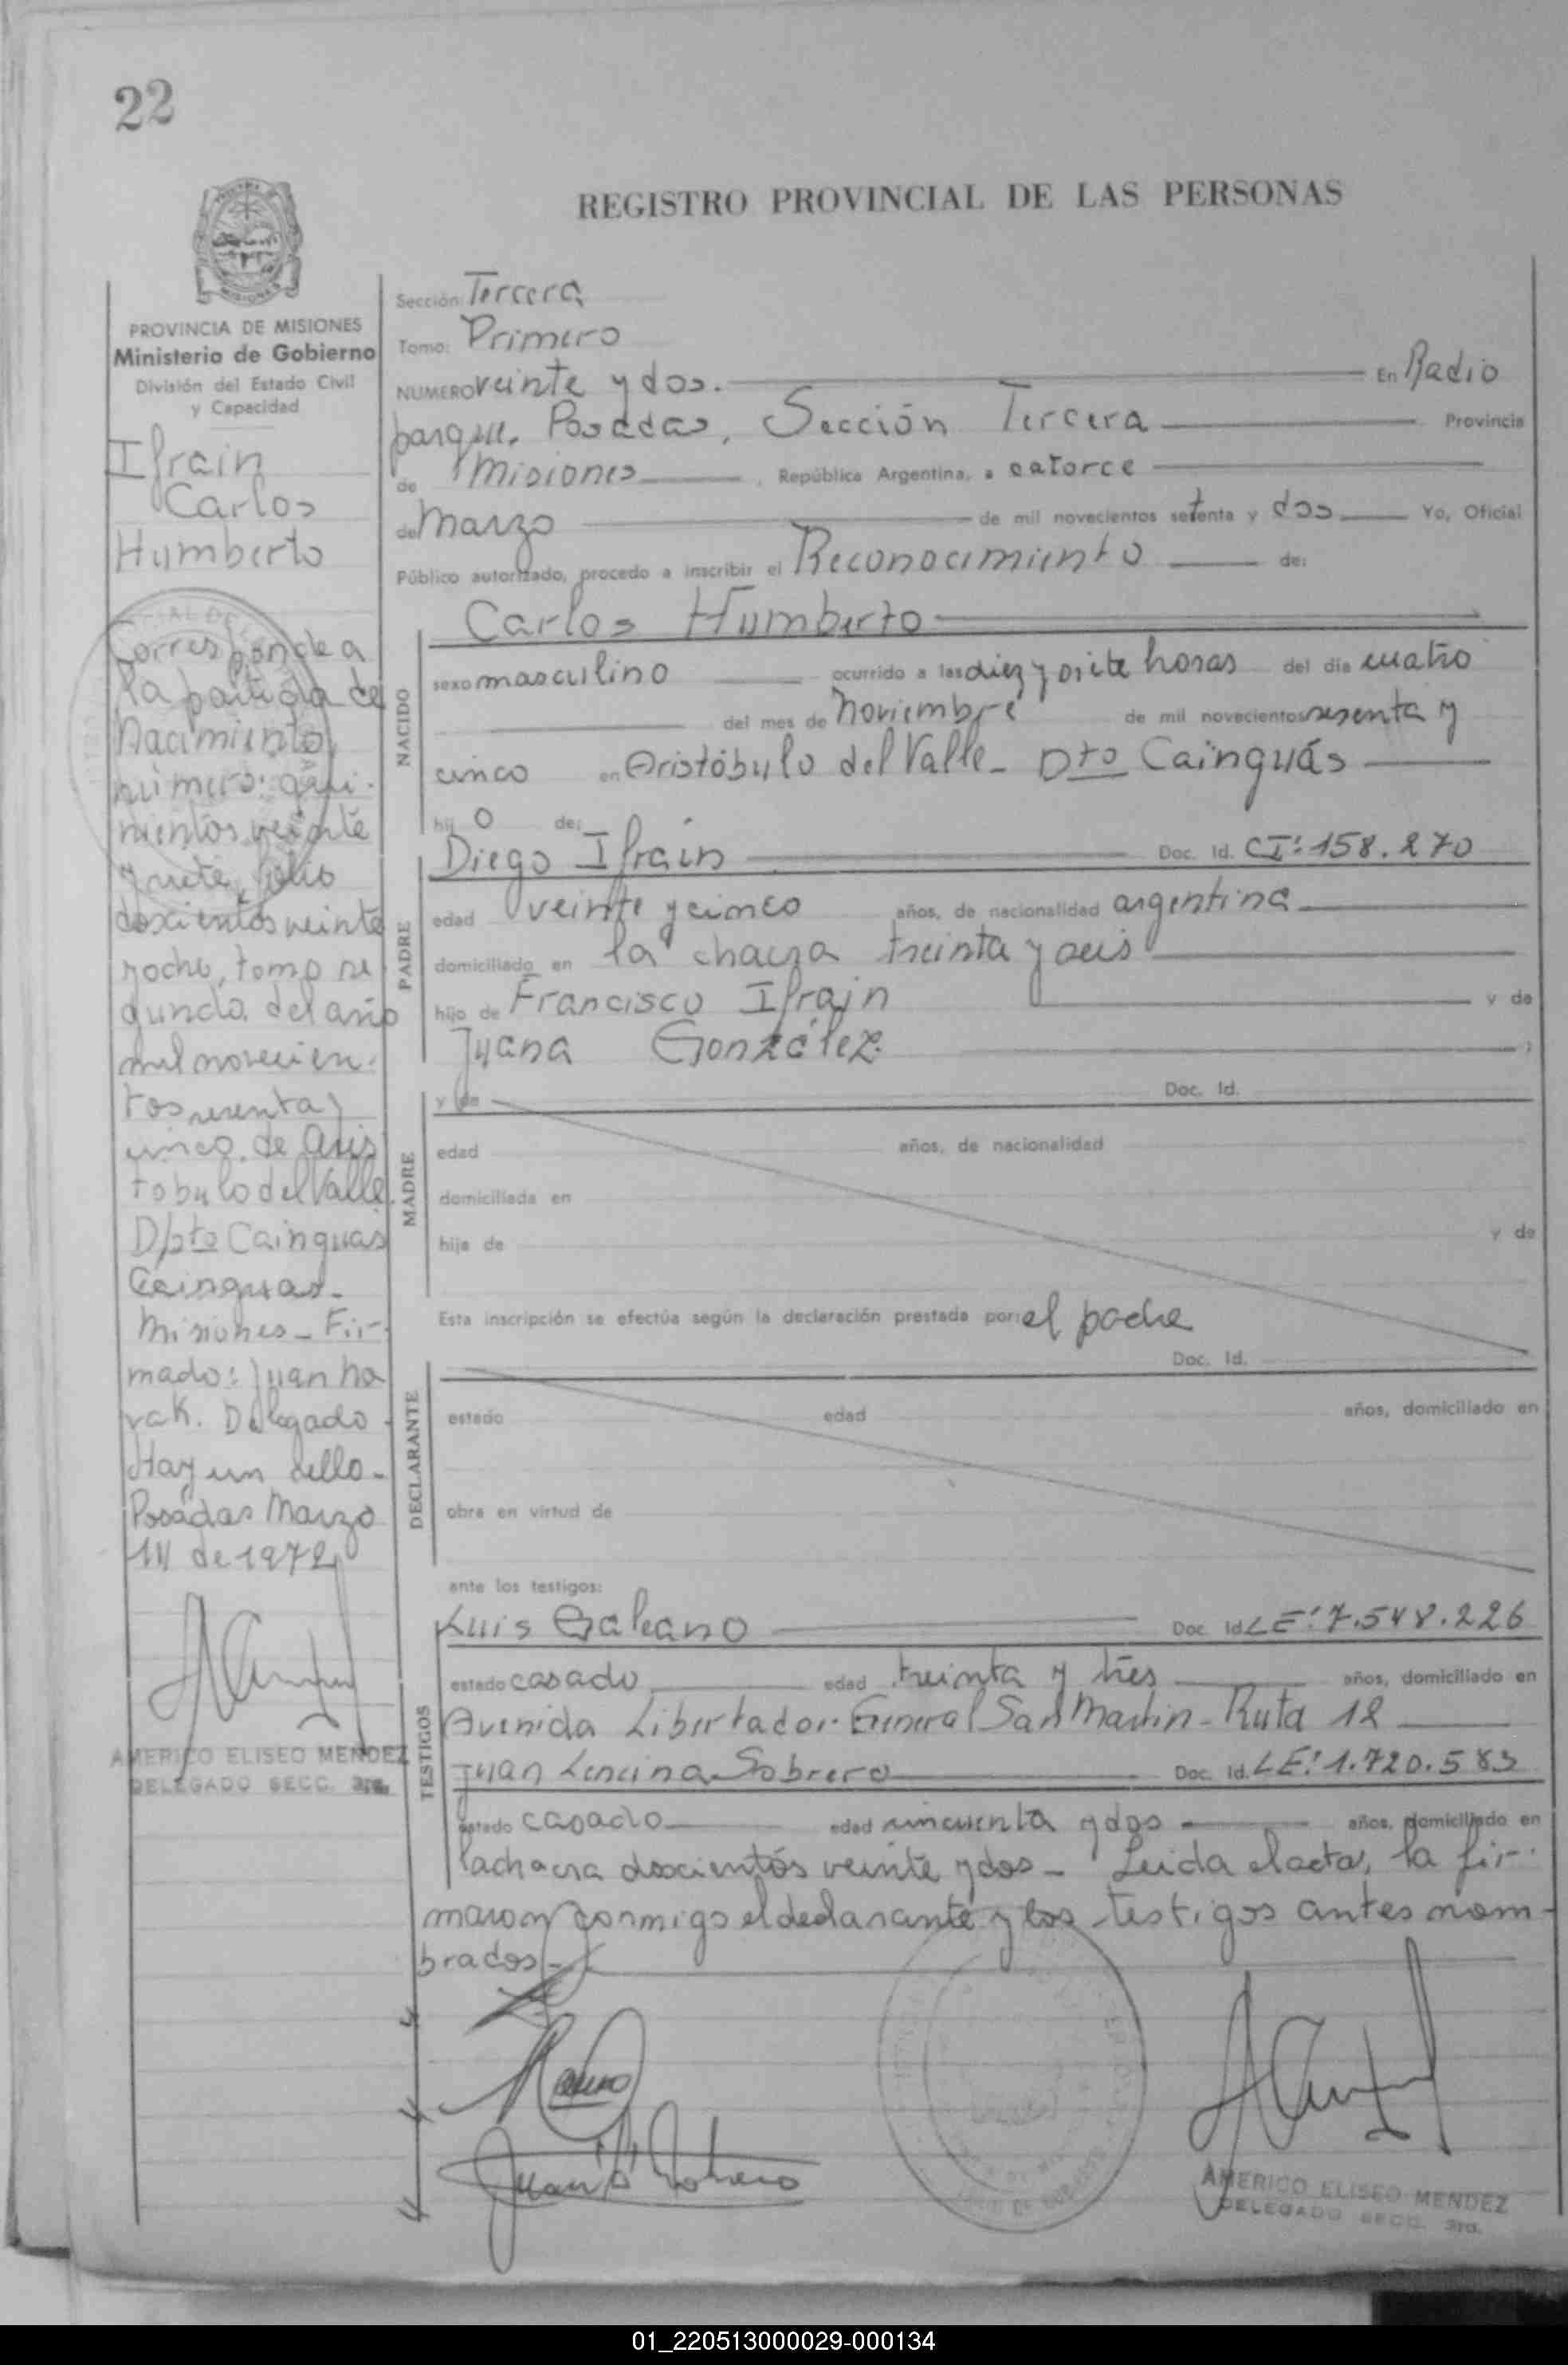 22
REGISTRO PROVINCIAL DE LAS PERSONAS
MISIONES
PROVINCIA DE MISIONES
Ministerio de Gobierno
División del Estado Civil
y Capacidad
Ifrain
Carlos
Humberto
Corresponde a
la partida de
Nacimiento
número: qui-
nientos veinte
y siete, folio
doscientos veinte
y ocho, tomo se
gundo, del año
mil novecien-
tos sesenta y
cinco, de Aris
tobulo del Valle.
Dpto Cainguas
Cainguas-
Misiones - Fir-
mado: Juan No
vak. Delegado -
Hay un sello -
Posadas Marzo
14 de 1972
AMERICO ELISEO MENDEZ
DELEGADO SECC. 3ra.
Sección: Tercera
Tomo: Primero
NUMERO veinte y dos. En Radio
parque, Posadas, Sección Tercera Provincia
de Misiones, República Argentina, a catorce
de Marzo de mil novecientos setenta y dos Yo, Oficial
Público autorizado, procedo a inscribir el Reconocimiento de:
Carlos Humberto
NACIDO
sexo masculino ocurrido a las diez y siete horas del día cuatro
del mes de Noviembre de mil novecientos sesenta y
cinco en Aristóbulo del Valle - Dto Cainguás
hij o de:
Diego Ifrain Doc. Id. CI: 158.270
PADRE
edad veinte y cinco años, de nacionalidad argentina
domiciliado en la chacra treinta y seis
hijo de Francisco Ifrain y de
Juana González.
MADRE
y de Doc. Id.
edad años, de nacionalidad
domiciliada en
hija de y de
Esta inscripción se efectúa según la declaración prestada por: el padre
DECLARANTE
Doc. Id.
estado edad años, domiciliado en
obra en virtud de
ante los testigos:
TESTIGOS
Luis Galeano Doc. Id. LE: 7.548.226
estado casado edad treinta y tres años, domiciliado en
Avenida Libertador General San Martin - Ruta 12
Juan Lencina Sobrero Doc. Id. LE: 1.720.583
estado casado edad cincuenta y dos años, domiciliado en
la chacra doscientos veinte y dos - Leida el acta, la fir-
maron conmigo el declarante y los testigos antes nom-
brados -
AMERICO ELISEO MENDEZ
DELEGADO SECC. 3ra.
01_220513000029-000134